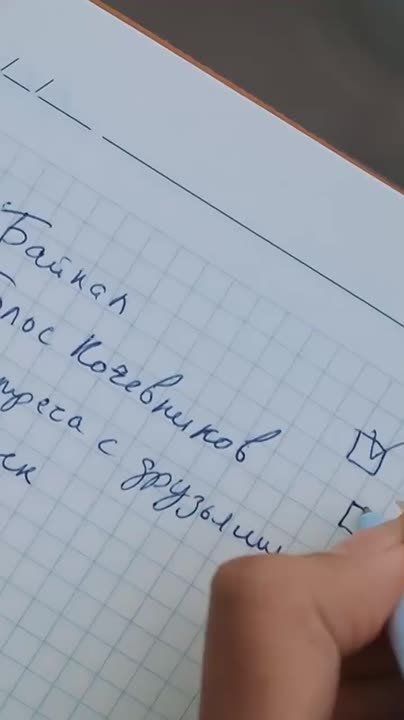 Байкал
Голос Кочевников
встреча с друзьями